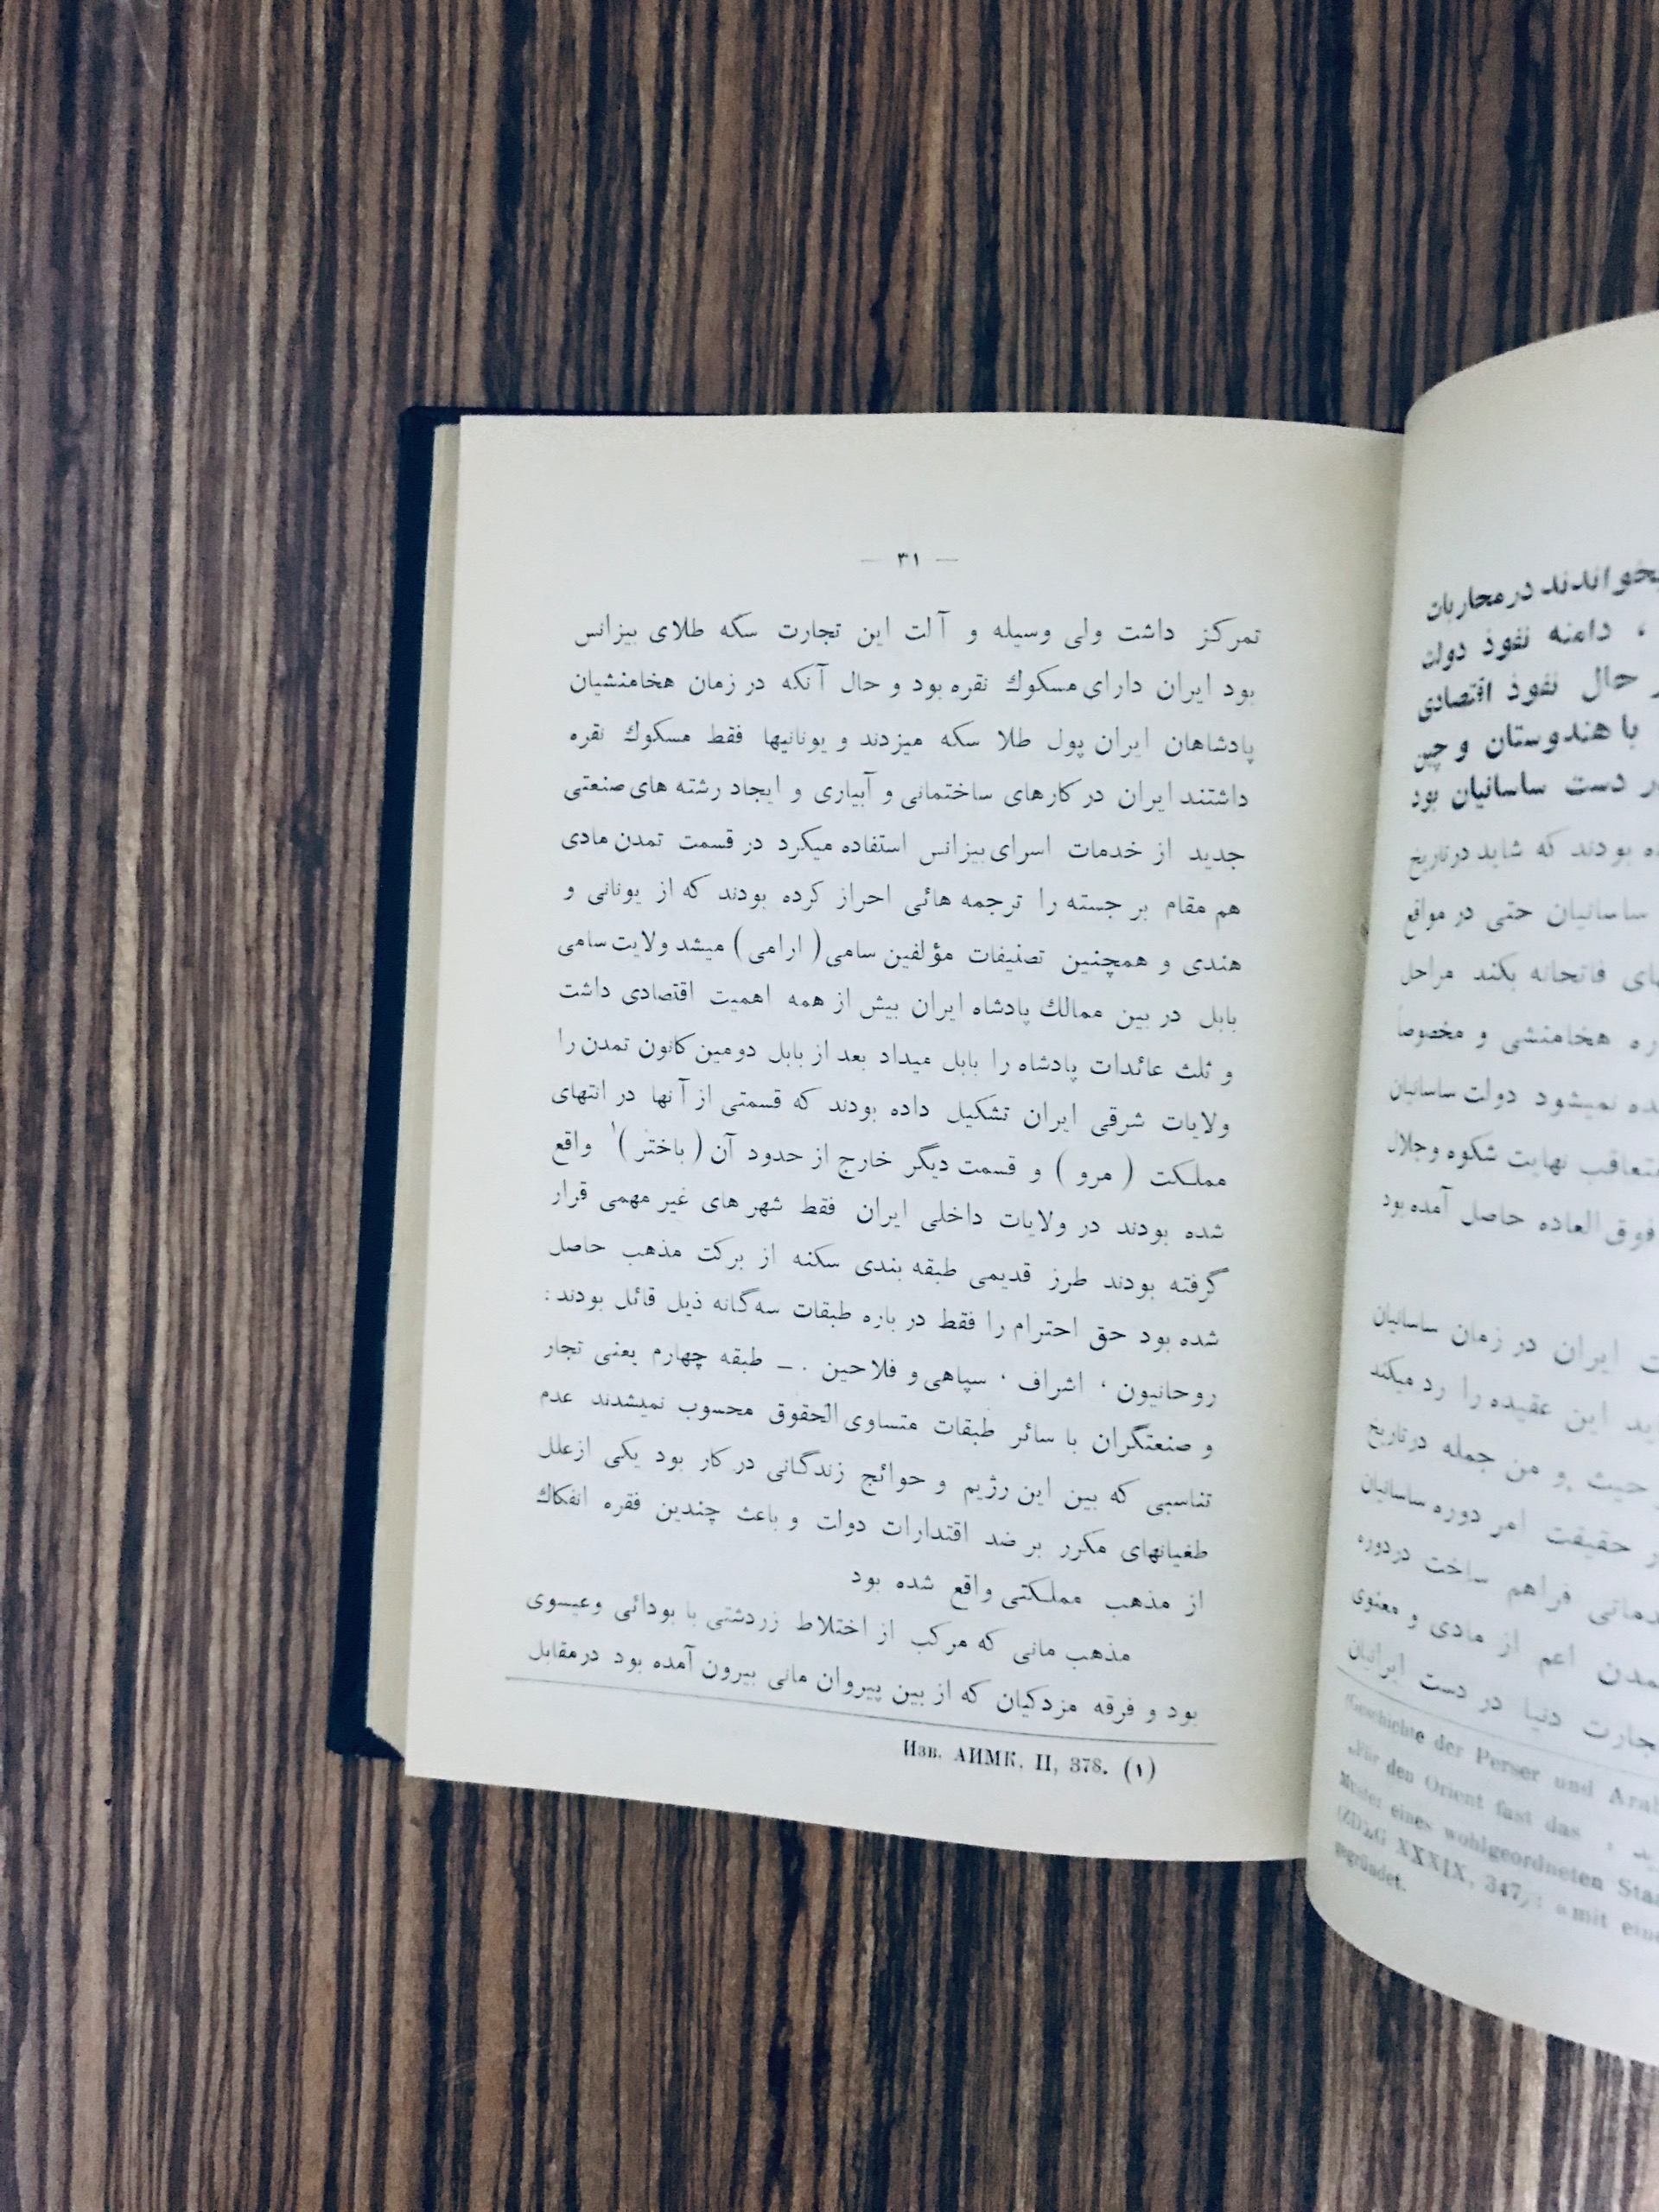 بخواندند در محاربات
، دامنه نفوذ دولت
حال نفوذ اقتصادی
با هندوستان و چین
در دست ساسانیان بود
بودند که شاید در تاریخ
ساسانیان حتی در مواقع
های فاتحانه بکند مراحل
هخامنشی و مخصوصاً
نمیشود دولت ساسانیان
متعاقب نهایت شکوه و جلال
فوق العاده حاصل آمده بود
ایران در زمان ساسانیان
این عقیده را رد میکند
حیث و من جمله در تاریخ
حقیقت امر دوره ساسانیان
فراهم ساخت در دوره
تمدن اعم از مادی و معنوی
تجارت دنیا در دست ایرانیان
(Geschichte der Perser und
„Für den Orient fast das
Muster eines wohlgeordneten
(ZDMG XXXIX, 347) : «mit
gegründet.
— ۳۱ —
تمرکز داشت ولی وسیله و آلت این تجارت سکه طلای بیزانس
بود ایران دارای مسکوك نقره بود و حال آنکه در زمان هخامنشیان
پادشاهان ایران پول طلا سکه میزدند و یونانیها فقط مسکوك نقره
داشتند ایران در کارهای ساختمانی و آبیاری و ایجاد رشته های صنعتی
جدید از خدمات اسرای بیزانس استفاده میکرد در قسمت تمدن مادی
هم مقام بر جسته را ترجمه هائی احراز کرده بودند که از یونانی و
هندی و همچنین تصنیفات مؤلفین سامی ( ارامی ) میشد ولایت سامی
بابل در بین ممالك پادشاه ایران بیش از همه اهمیت اقتصادی داشت
و ثلث عائدات پادشاه را بابل میداد بعد از بابل دومین کانون تمدن را
ولایات شرقی ایران تشکیل داده بودند که قسمتی از آنها در انتهای
مملکت ( مرو ) و قسمت دیگر خارج از حدود آن ( باختر )¹ واقع
شده بودند در ولایات داخلی ایران فقط شهر های غیر مهمی قرار
گرفته بودند طرز قدیمی طبقه بندی سکنه از برکت مذهب حاصل
شده بود حق احترام را فقط در باره طبقات سه گانه ذیل قائل بودند :
روحانیون ، اشراف ، سپاهی و فلاحین . ـ طبقه چهارم یعنی تجار
و صنعتگران با سائر طبقات متساوی الحقوق محسوب نمیشدند عدم
تناسبی که بین این رژیم و حوائج زندگانی در کار بود یکی از علل
طغیانهای مکرر بر ضد اقتدارات دولت و باعث چندین فقره انفکاك
از مذهب مملکتی واقع شده بود
مذهب مانی که مرکب از اختلاط زردشتی با بودائی و عیسوی
بود و فرقه مزدکیان که از بین پیروان مانی بیرون آمده بود در مقابل
Изв. АИМК, II, 378. (۱)